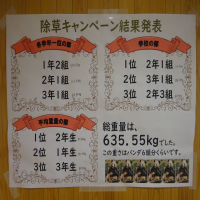 除草キャンペーン結果発表
各学年一位の部
1年2組
2年1組
3年1組
学校の部
1位 2年1組
2位 3年1組
3位 2年3組
平均重量の部
1位 2年生
2位 1年生
3位 3年生
総重量は、
635.55kgでした。
この重さはパンダ6頭分くらいです。